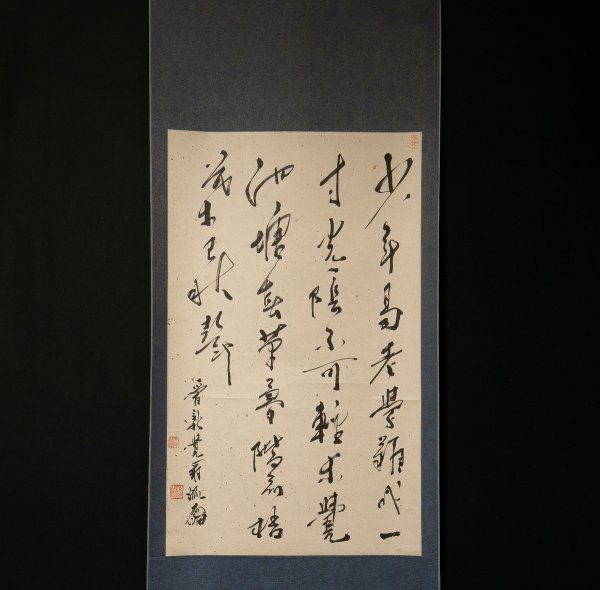 少年易老學難成一
寸光陰不可輕未覺
池塘春草夢階前梧
葉已秋聲